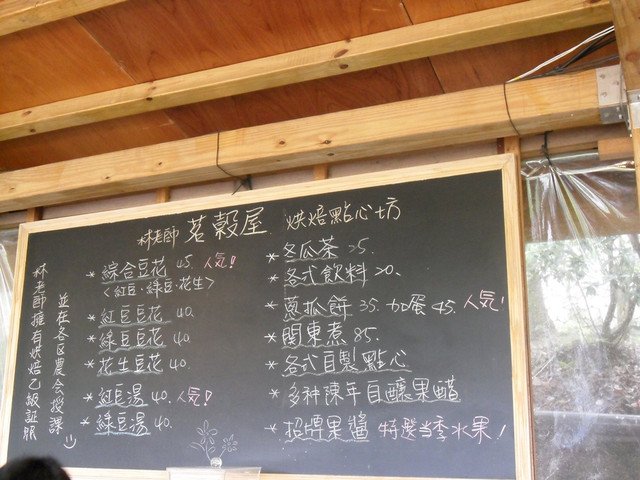 林老師 茗穀屋 烘焙點心坊
林老師擁有烘焙乙級証照
並在各区農会授課
* 綜合豆花 45. 人気!
<紅豆·綠豆·花生>
* 紅豆豆花 40.
* 綠豆豆花 40.
* 花生豆花 40.
* 紅豆湯 40. 人気!
* 綠豆湯 40.
* 冬瓜茶 25.
* 各式飲料 20.
* 蔥抓餅 35. 加蛋 45. 人気!
* 関東煮 85.
* 各式自製點心
* 多种陳年自釀果醋
* 招牌果醬 特選当季水果!